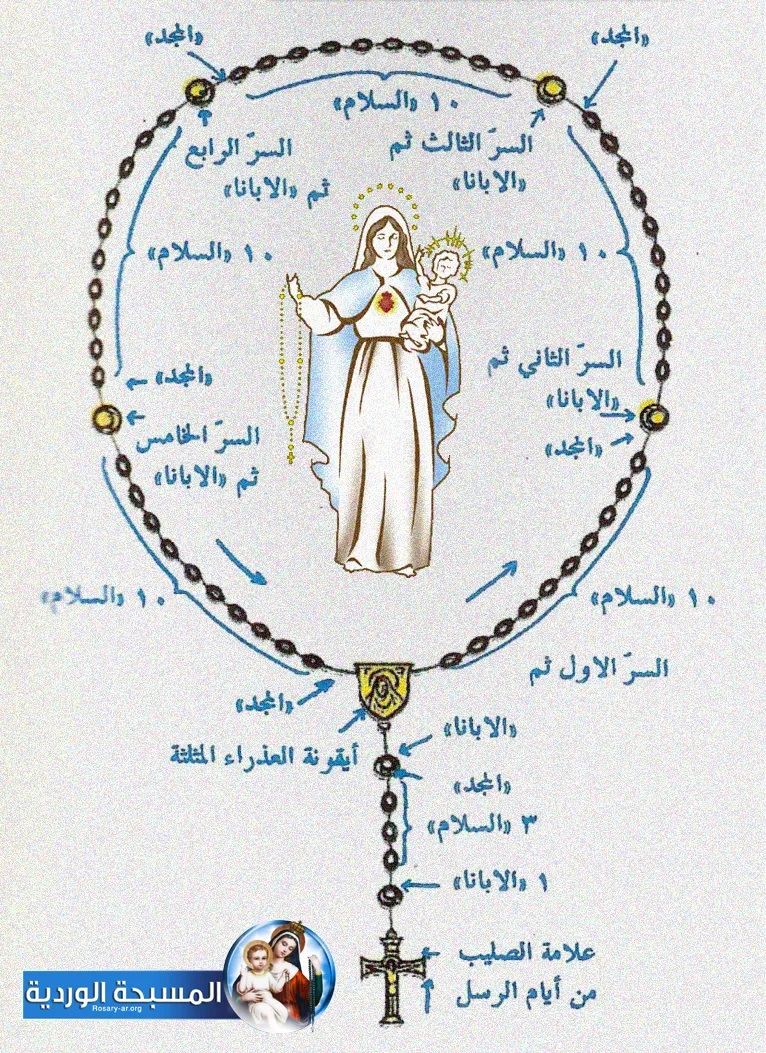 «المجد»
«المجد»
١٠ «السلام»
السرّ الثالث ثم
«الابانا»
السرّ الرابع
ثم «الابانا»
١٠ «السلام»
١٠ «السلام»
السرّ الثاني ثم
«الابانا»
«المجد»
«المجد»
السرّ الخامس
ثم «الابانا»
١٠ «السلام»
١٠ «السلام»
السرّ الاول ثم
«الابانا»
«المجد»
أيقونة العذراء المثلثة
«المجد»
٣ «السلام»
١ «الابانا»
علامة الصليب
من أيام الرسل
المسبحة الوردية
Rosary-ar.org